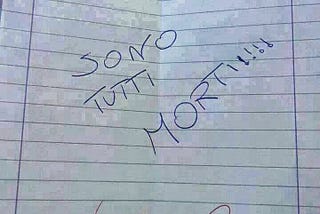 SONO
TUTTI
MORTI!!!!